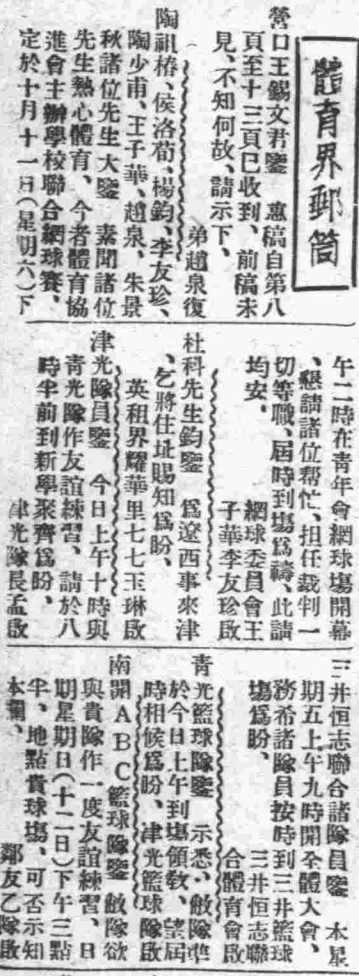 體育界郵筒
營口王錫文君鑒　惠稿自第八
頁至十三頁已收到、前稿未
見、不知何故、請示下、
弟趙泉復
陶祖椿、侯洛荀、楊鈞、李友珍、
陶少甫、王子華、趙泉、朱景
秋諸位先生大鑒　素聞諸位
先生熱心體育、今者體育協
進會主辦學校聯合網球賽、
定於十月十一日（星期六）下
午二時在青年會網球場開幕
、懇請諸位帮忙、担任裁判一
切等職、屆時到塲爲禱、此請
均安、
網球委員會王
子華李友珍啟
杜科先生鈞鑒　爲遼西事來津
、乞將住址賜知爲盼、
英租界耀華里七七玉琳啟
津光隊員鑒　今日上午十時與
青光隊作友誼練習、請於八
時半前到新學聚齊爲盼、
津光隊長孟啟
三井恒志聯合諸隊員鑒　本星
期五上午九時開全體大會、
務希諸隊員按時到三井籃球
塲爲盼、
三井恒志聯
合體育會啟
青光籃球隊鑒　示悉、敝隊準
於今日上午到塲領敎、望屆
時相候爲盼、津光籃球隊啟
南開ABC籃球隊鑒　敝隊欲
與貴隊作一度友誼練習、日
期星期日（十二日）下午三點
半、地點貴球塲、可否示知
本欄、
鄰友乙隊啟